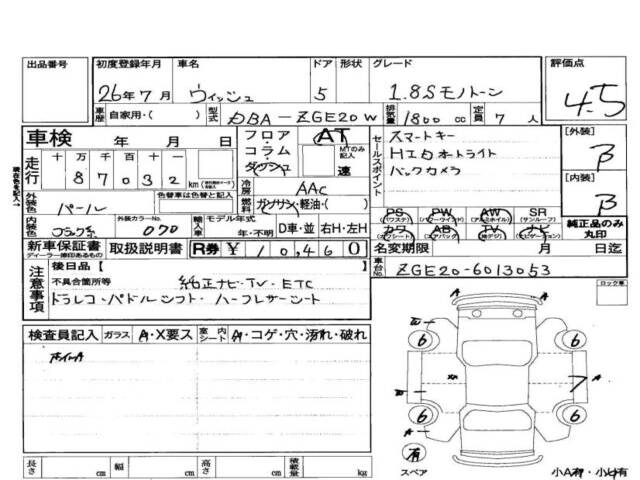 出品番号 初度登録年月 車名 ドア 形状 グレード 評価点
26年7月 ウィッシュ 5 1.8Sモノトーン 4.5
車歴 自家用・( ) 型式 DBA-ZGE20W 排気量 1800 cc 定員 7 人
車検 年 月 日 フロア・コラム・ダッシュ AT MTのみ記入 速
セールスポイント スマートキー
HIDオートライト
バックカメラ
[外装] B
[内装] B
走行 十 万 千 百 十 一
87032 km
冷房 AAC
外装色 パール 色替車は色替と記入 燃料 ガソリン・軽油・( )
内装色 ブラック系 外装カラーNo. 070 輸入車 モデル年式 年・不明 D車・並 右H・左H
PS (パワステ) PW (パワーウインド) AW (アルミホイル) SR (サンルーフ)
カワ (カワシート) AB (エアバッグ) TV (地デジ) ナビ (ナビゲーション)
純正品のみ丸印
新車保証書 ディーラー捺印あるもの 取扱説明書 R券 ¥10,460
名変期限 月 日迄
車台No. ZGE20-6013053
注意事項 後日品【 】
不具合箇所等 純正ナビ・TV・ETC
ドラレコ・パドルシフト・ハーフレザーシート
ロック車
検査員記入 ガラス A・X要ス 室内シート A・コゲ・穴・汚れ・破れ
ホイールA
A
6 6
A
6 6
A
A
有
スペア
長さ cm 幅 cm 高さ cm 積載量 kg
小A有・小U有